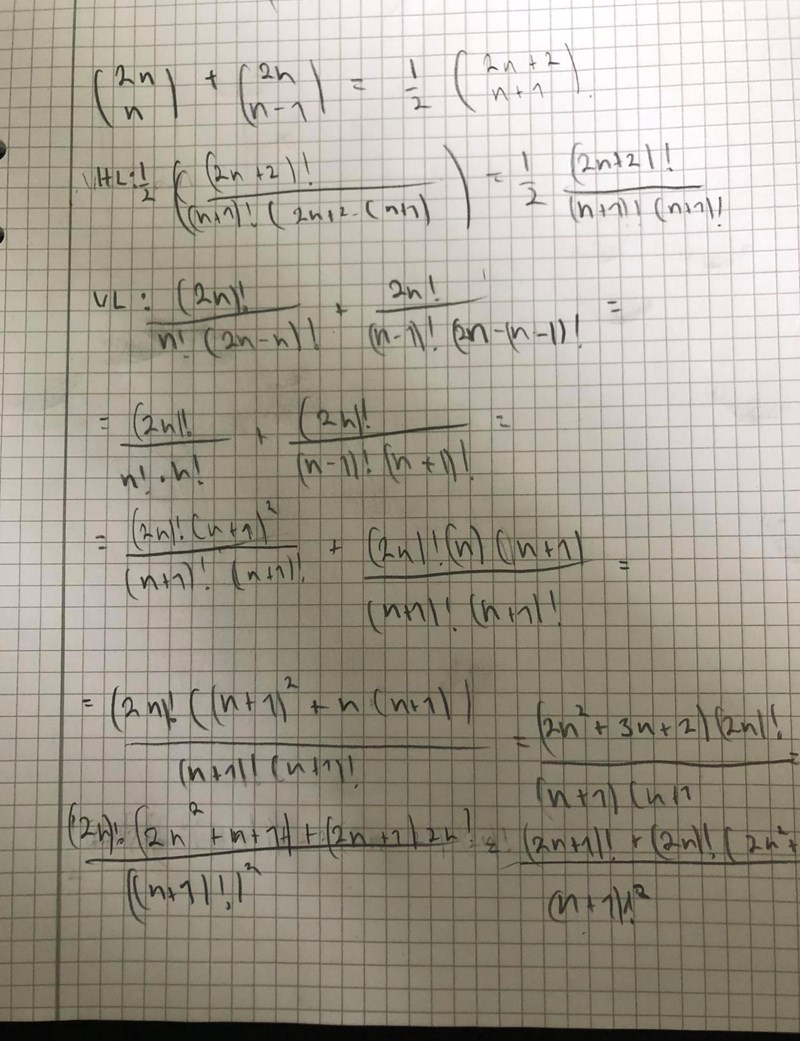 (2n n) + (2n n-1) = 1/2 (2n+2 n+1).
HL: 1/2 ((2n+2)! / ((n+1)! (2n+2-(n+1))) = 1/2 (2n+2)! / ((n+1)! (n+1)!)
VL: (2n)! / (n! (2n-n)!) + 2n! / ((n-1)! (2n-(n-1)!) =
= (2n)! / (n! · n!) + (2n)! / ((n-1)! (n+1)!) =
= (2n)! (n+1)² / ((n+1)! (n+1)!) + (2n)! (n) (n+1) / ((n+1)! (n+1)!) =
= (2n)! ((n+1)² + n(n+1)) / ((n+1)! (n+1)!) = (2n²+3n+2)(2n)! / ((n+1) (n+1 =
(2n)! (2n²+n+1) + (2n+1) 2n! / ((n+1)!)² = (2n+1)! + (2n)! (2n²+ / (n+1)!²